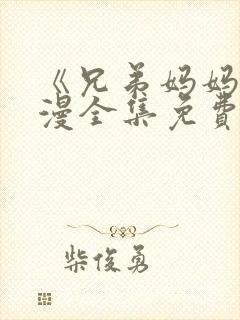 《兄弟妈妈
漫全集免費
柴俊勇